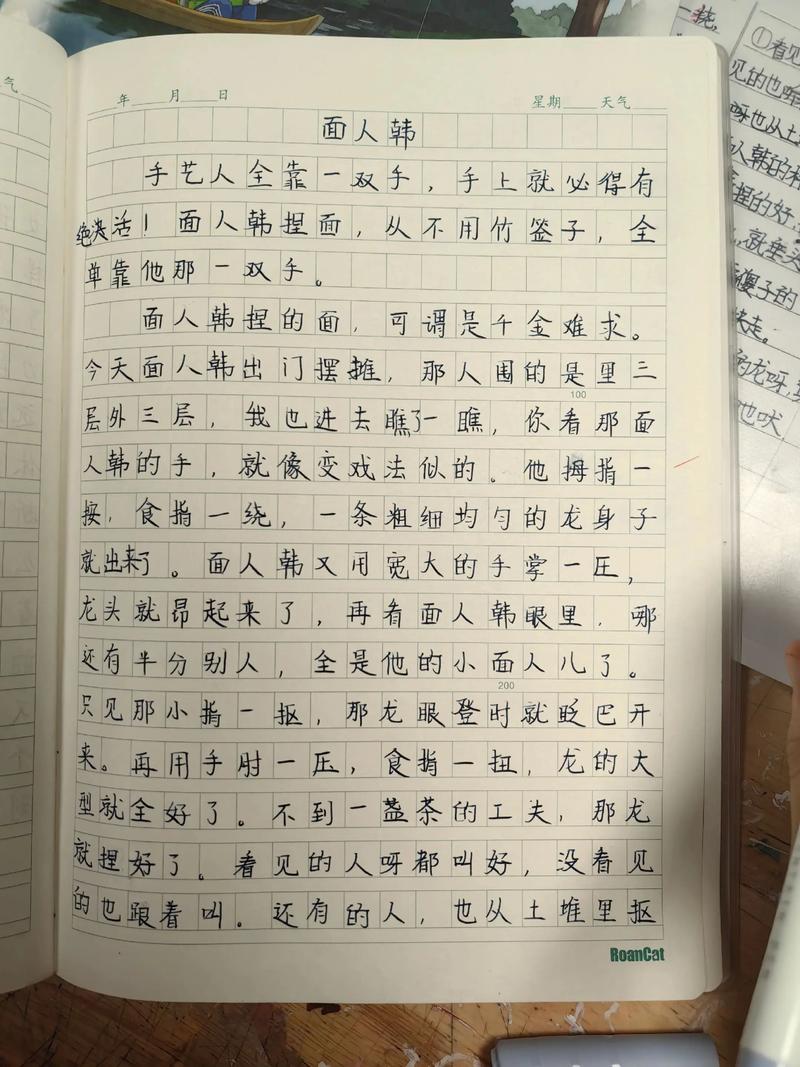 年 月 日 星期 天气
面人韩
手艺人全靠一双手，手上就必得有
绝活！面人韩捏面，从不用竹签子，全
单靠他那一双手。
面人韩捏的面，可谓是千金难求。
今天面人韩出门摆摊，那人围的是里三
100
层外三层，我也进去瞧了一瞧，你看那面
人韩的手，就像变戏法似的。他拇指一
按，食指一绕，一条粗细均匀的龙身子
就出来了。面人韩又用宽大的手掌一压，
龙头就昂起来了，再看面人韩眼里，哪
还有半分别人，全是他的小面人儿了。
200
只见那小指一抠，那龙眼登时就眨巴开
来。再用手肘一压，食指一扭，龙的大
型就全好了。不到一盏茶的工夫，那龙
就捏好了。看见的人呀都叫好，没看见
的也跟着叫。还有的人，也从土堆里抠
RoanCat
气
一挠，
①看见
见的也跟
呀也从土
人韩的
捏的好，
，就垂头
傻子的
走。
的龙呀，
他吠